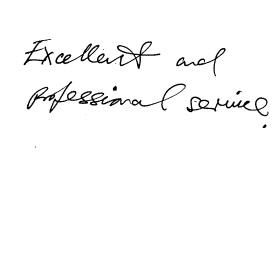 Excellent and
professional service.